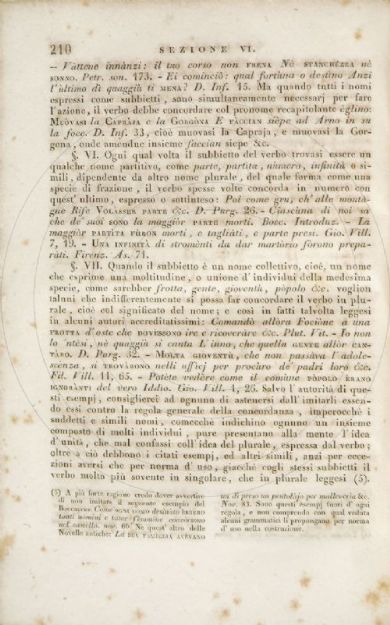 210 SEZIONE VI.
— Vattene innànzi: il tuo corso non FRENA Nè STANCHEZZA nè
SONNO. Petr. son. 173. — Ei cominciò: qual fortuna o destino Anzi
l'ultimo dì quaggiù ti MENA? D. Inf. 15. Ma quando tutti i nomi
espressi come subbietti, sono simultaneamente necessarj per fare
l'azione, il verbo debbe concordare col pronome recapitolante eglino:
MUOVASI la CAPRÀIA e la GORGÒNA E FACCIAN siepe ad Arno in su
la foce. D. Inf. 33, cioè muovasi la Capraja, e muovasi la Gor-
gona, onde amendue insieme faccian siepe &c.
§. VI. Ogni qual volta il subbietto del verbo trovasi essere un
qualche nome partitivo, come parte, partita, numero, infinità o si-
mili, dipendente da altro nome plurale, del quale forma come una
specie di frazione, il verbo spesse volte concorda in numero con
quest' ultimo, espresso o sottinteso: Poi come gru, ch' alle montà-
gne Rife VOLASSER PARTE &c. D. Purg. 26. — Ciascùna di noi sa
che de' suoi SONO la maggiòr PARTE morti. Bocc. Introduz. — La
maggiòr PARTITA FÙRON morti, e tagliàti, e parte presi. Gio. Vill.
7, 19. — UNA INFINITÀ di stromènti da dar martòrio fùrono prepa-
ràti. Firenz. As. 71.
§. VII. Quando il subbietto è un nome collettivo, cioè, un nome
che esprime una moltitudine, o unione d' individui della medesima
specie, come sarebber frotta, gente, gioventù, pòpolo &c. voglion
taluni che indifferentemente si possa far concordare il verbo in plu-
rale, cioè col significato del nome; e così in fatti talvolta leggesi
in alcuni autori accreditatissimi: Comandò allòra Focìone a una
FROTTA d'oste che DOVESSONO ire e ricoverare &c. Plut. Vit. — Io non
lo 'ntèsi, nè quaggiù si canta L'inno, che quella GENTE allòr CAN-
TÀRO. D. Purg. 32. — MOLTA GIOVENTÙ, che non passàva l'adole-
scenza, si TROVÀRONO nelli ufficj per procùro de' padri loro &c.
Fil. Vill. 11, 65. — Potète vedère come il comùne PÒPOLO ERANO
IGNORÀNTI del vero Iddio. Gio. Vill. 1, 26. Salvo l'autorità di que-
sti esempj, consiglierei ad ognuno di astenersi dall'imitarli essen-
do essi contro la regola generale della concordanza, imperocchè i
suddetti e simili nomi, comecchè indichino ognuno un insieme
composto di molti individui, pure presentano alla mente l'idea
d'unità, che mal confassi coll'idea del plurale, espressa dal verbo;
oltre a ciò debbono i citati esempj, ed altri simili, anzi per ecce-
zioni aversi che per norma d'uso, giacchè cogli stessi subbietti il
verbo molto più sovente in singolare, che in plurale leggesi (5).
(5) A più forte ragione credo dover avvertire
di non imitare il seguente esempio del
Boccaccio: Come
nel novello. nov. 60. Ne quest' altro delle
Novelle antiche: La SUA FAMIGLIA AVEVANO
un dì preso un pentolàjo per malleveria &c.
Nov. 83. Sono questi esempj fuori d'ogni
regola, e non comprendo con qual veduta
alcuni grammatici li propongano per norma
d'uso nella costruzione.